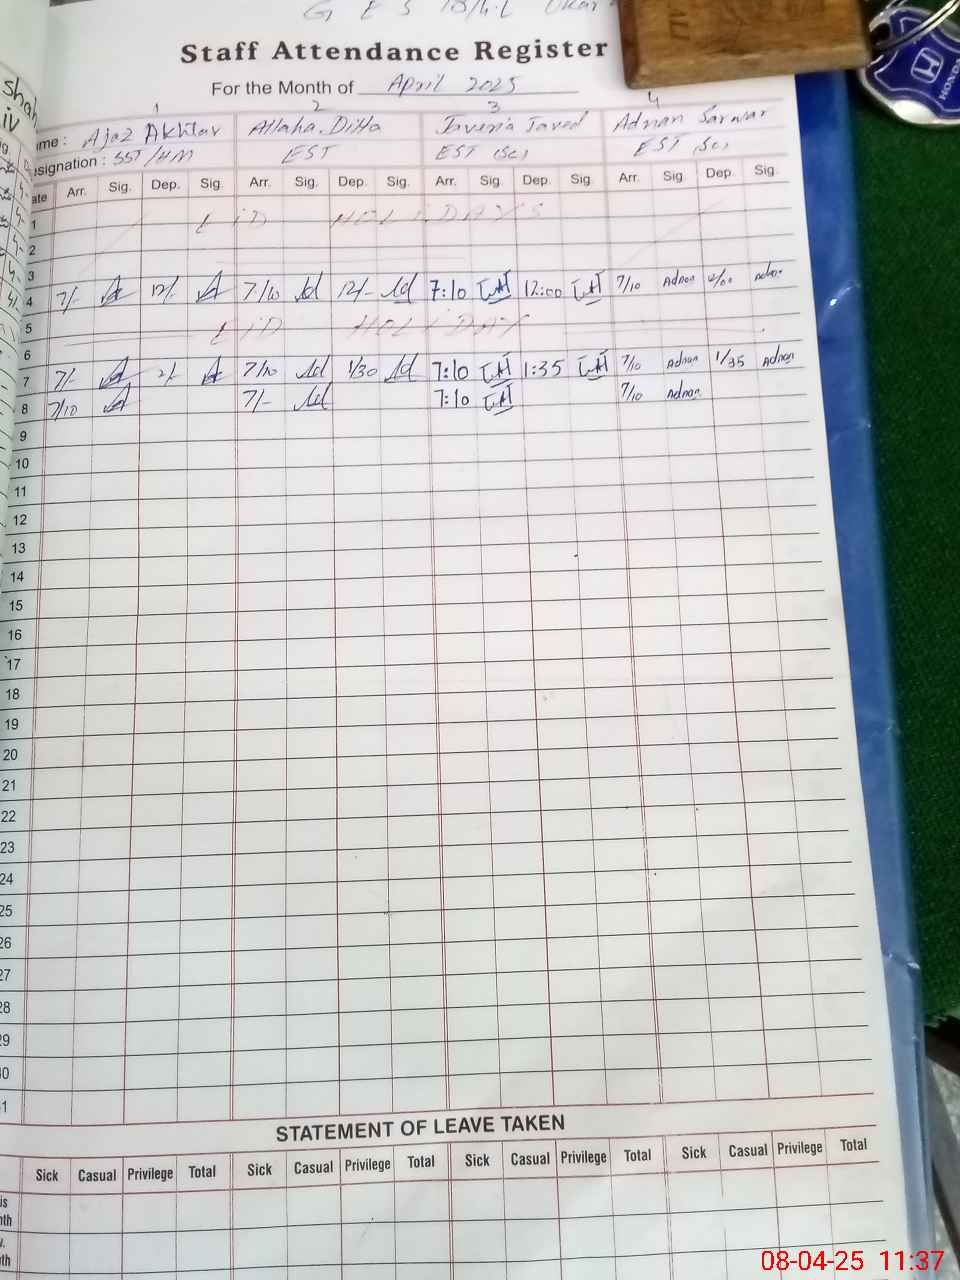 G E S 18/4.L
Staff Attendance Register
For the Month of April 2025
1 2 3 4
ame : Ajaz Akhtar Allaha. Ditta Javeria Javed Adnan Sarwar
esignation : SST/HM EST EST (Sc) EST (Sc)
ate Arr. Sig. Dep. Sig. Arr. Sig. Dep. Sig. Arr. Sig. Dep. Sig. Arr. Sig. Dep. Sig.
1 EID HOLIDAYS
2
3
4 7/- 12/- 7/10 12/- 7:10 12:00 7/10 Adnan 12/00 Adnan
5 EID HOLIDAY
6
7 7/- 2/- 7/10 1/30 7:10 1:35 7/10 Adnan 1/35 Adnan
8 7/10 7/- 7:10 7/10 Adnan
9
10
11
12
13
14
15
16
17
18
19
20
21
22
23
24
25
26
27
28
29
30
31
STATEMENT OF LEAVE TAKEN
Sick Casual Privilege Total Sick Casual Privilege Total Sick Casual Privilege Total Sick Casual Privilege Total
HONDA
08-04-25 11:37